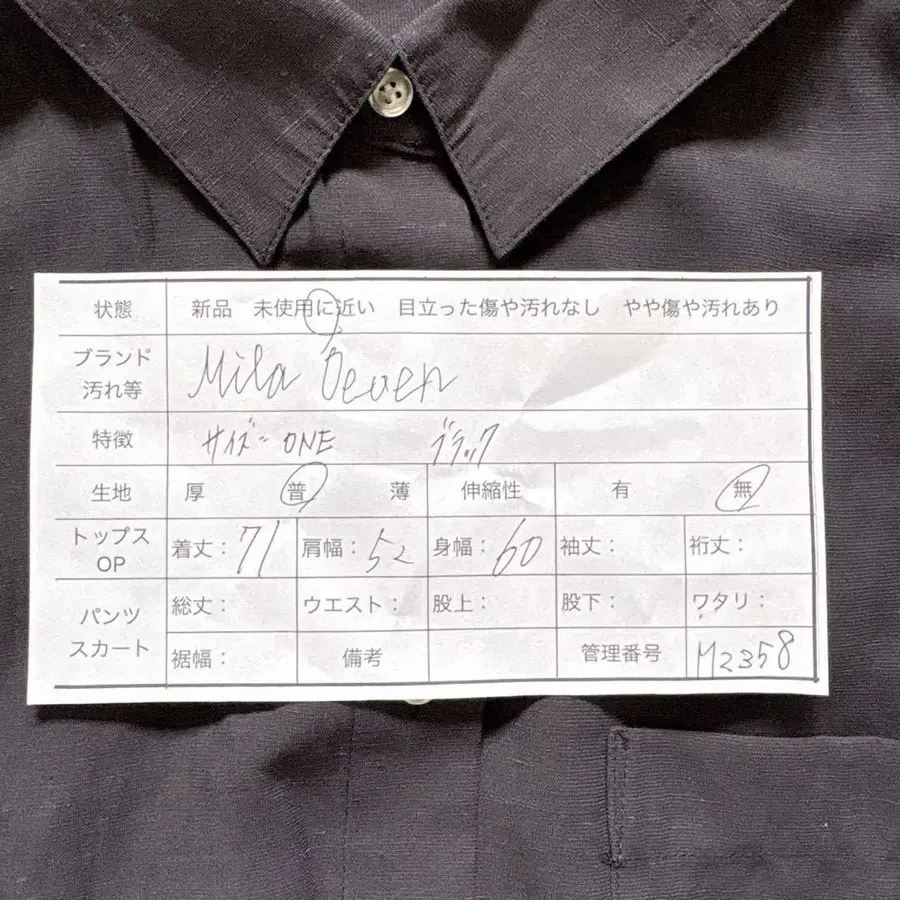 状態 新品 未使用に近い 目立った傷や汚れなし やや傷や汚れあり
ブランド
汚れ等 Mila Oeuen
特徴 サイズ- ONE ブラック
生地 厚 普 薄 伸縮性 有 無
トップス
OP 着丈: 71 肩幅: 52 身幅: 60 袖丈: 裄丈:
パンツ
スカート
総丈: ウエスト: 股上: 股下: ワタリ:
裾幅: 備考 管理番号 M2358